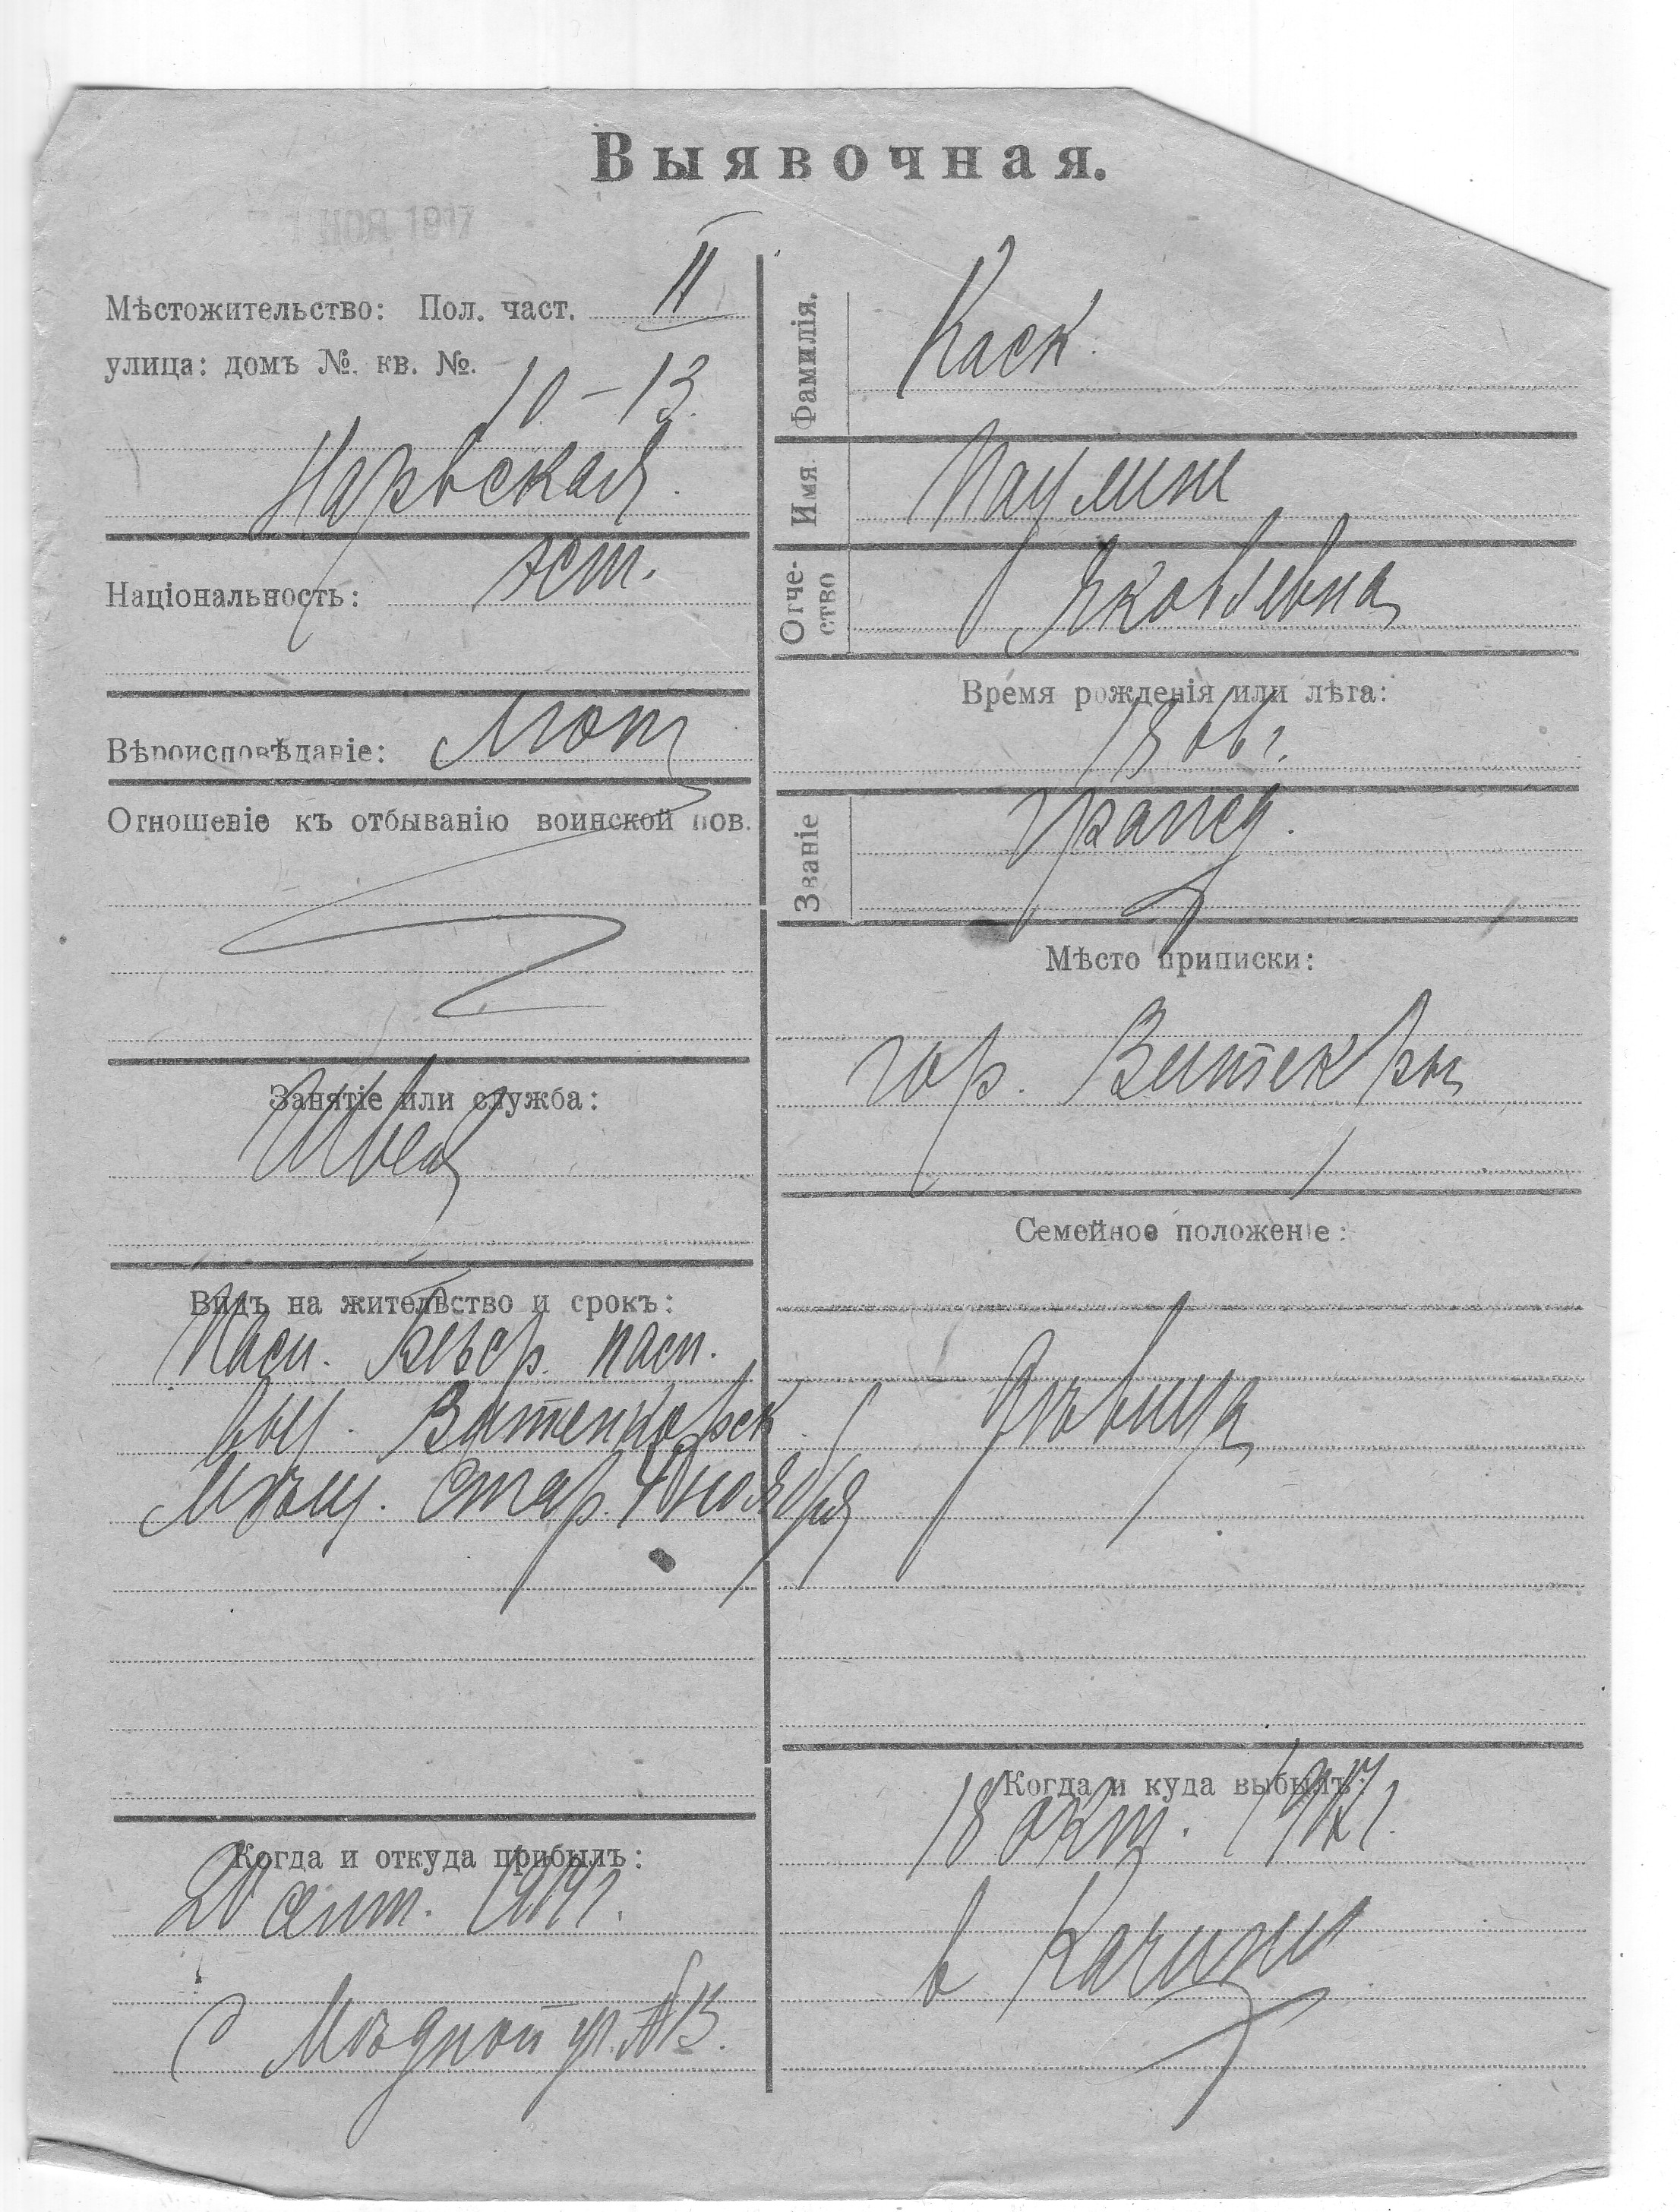 Выявочная.
1 НОЯ 1917
Мѣстожительство: Пол. част. II
улица: домъ №. кв. №.
10 – 13.
Нарвская.
Національность: эст.
Вѣроисповѣданіе: Лют
Отношеніе къ отбыванію воинской пов.
Занятіе или служба:
Швея
Видъ на жительство и срокъ:
Пасп. Безср. пасп.
выд.
Мѣщ. Стар. ноября
Когда и откуда прибылъ:
20 1917.
с Мѣдной ул. № 13.
Фамилія. Каск.
Имя Паулине
Отчество Яковлевна
Время рожденія или лѣта:
1866 г.
Званіе гражд.
Мѣсто приписки:
гор.
Семейное положеніе:
Дѣвица
Когда и куда выбылъ:
18 окт. 1917 г.
в